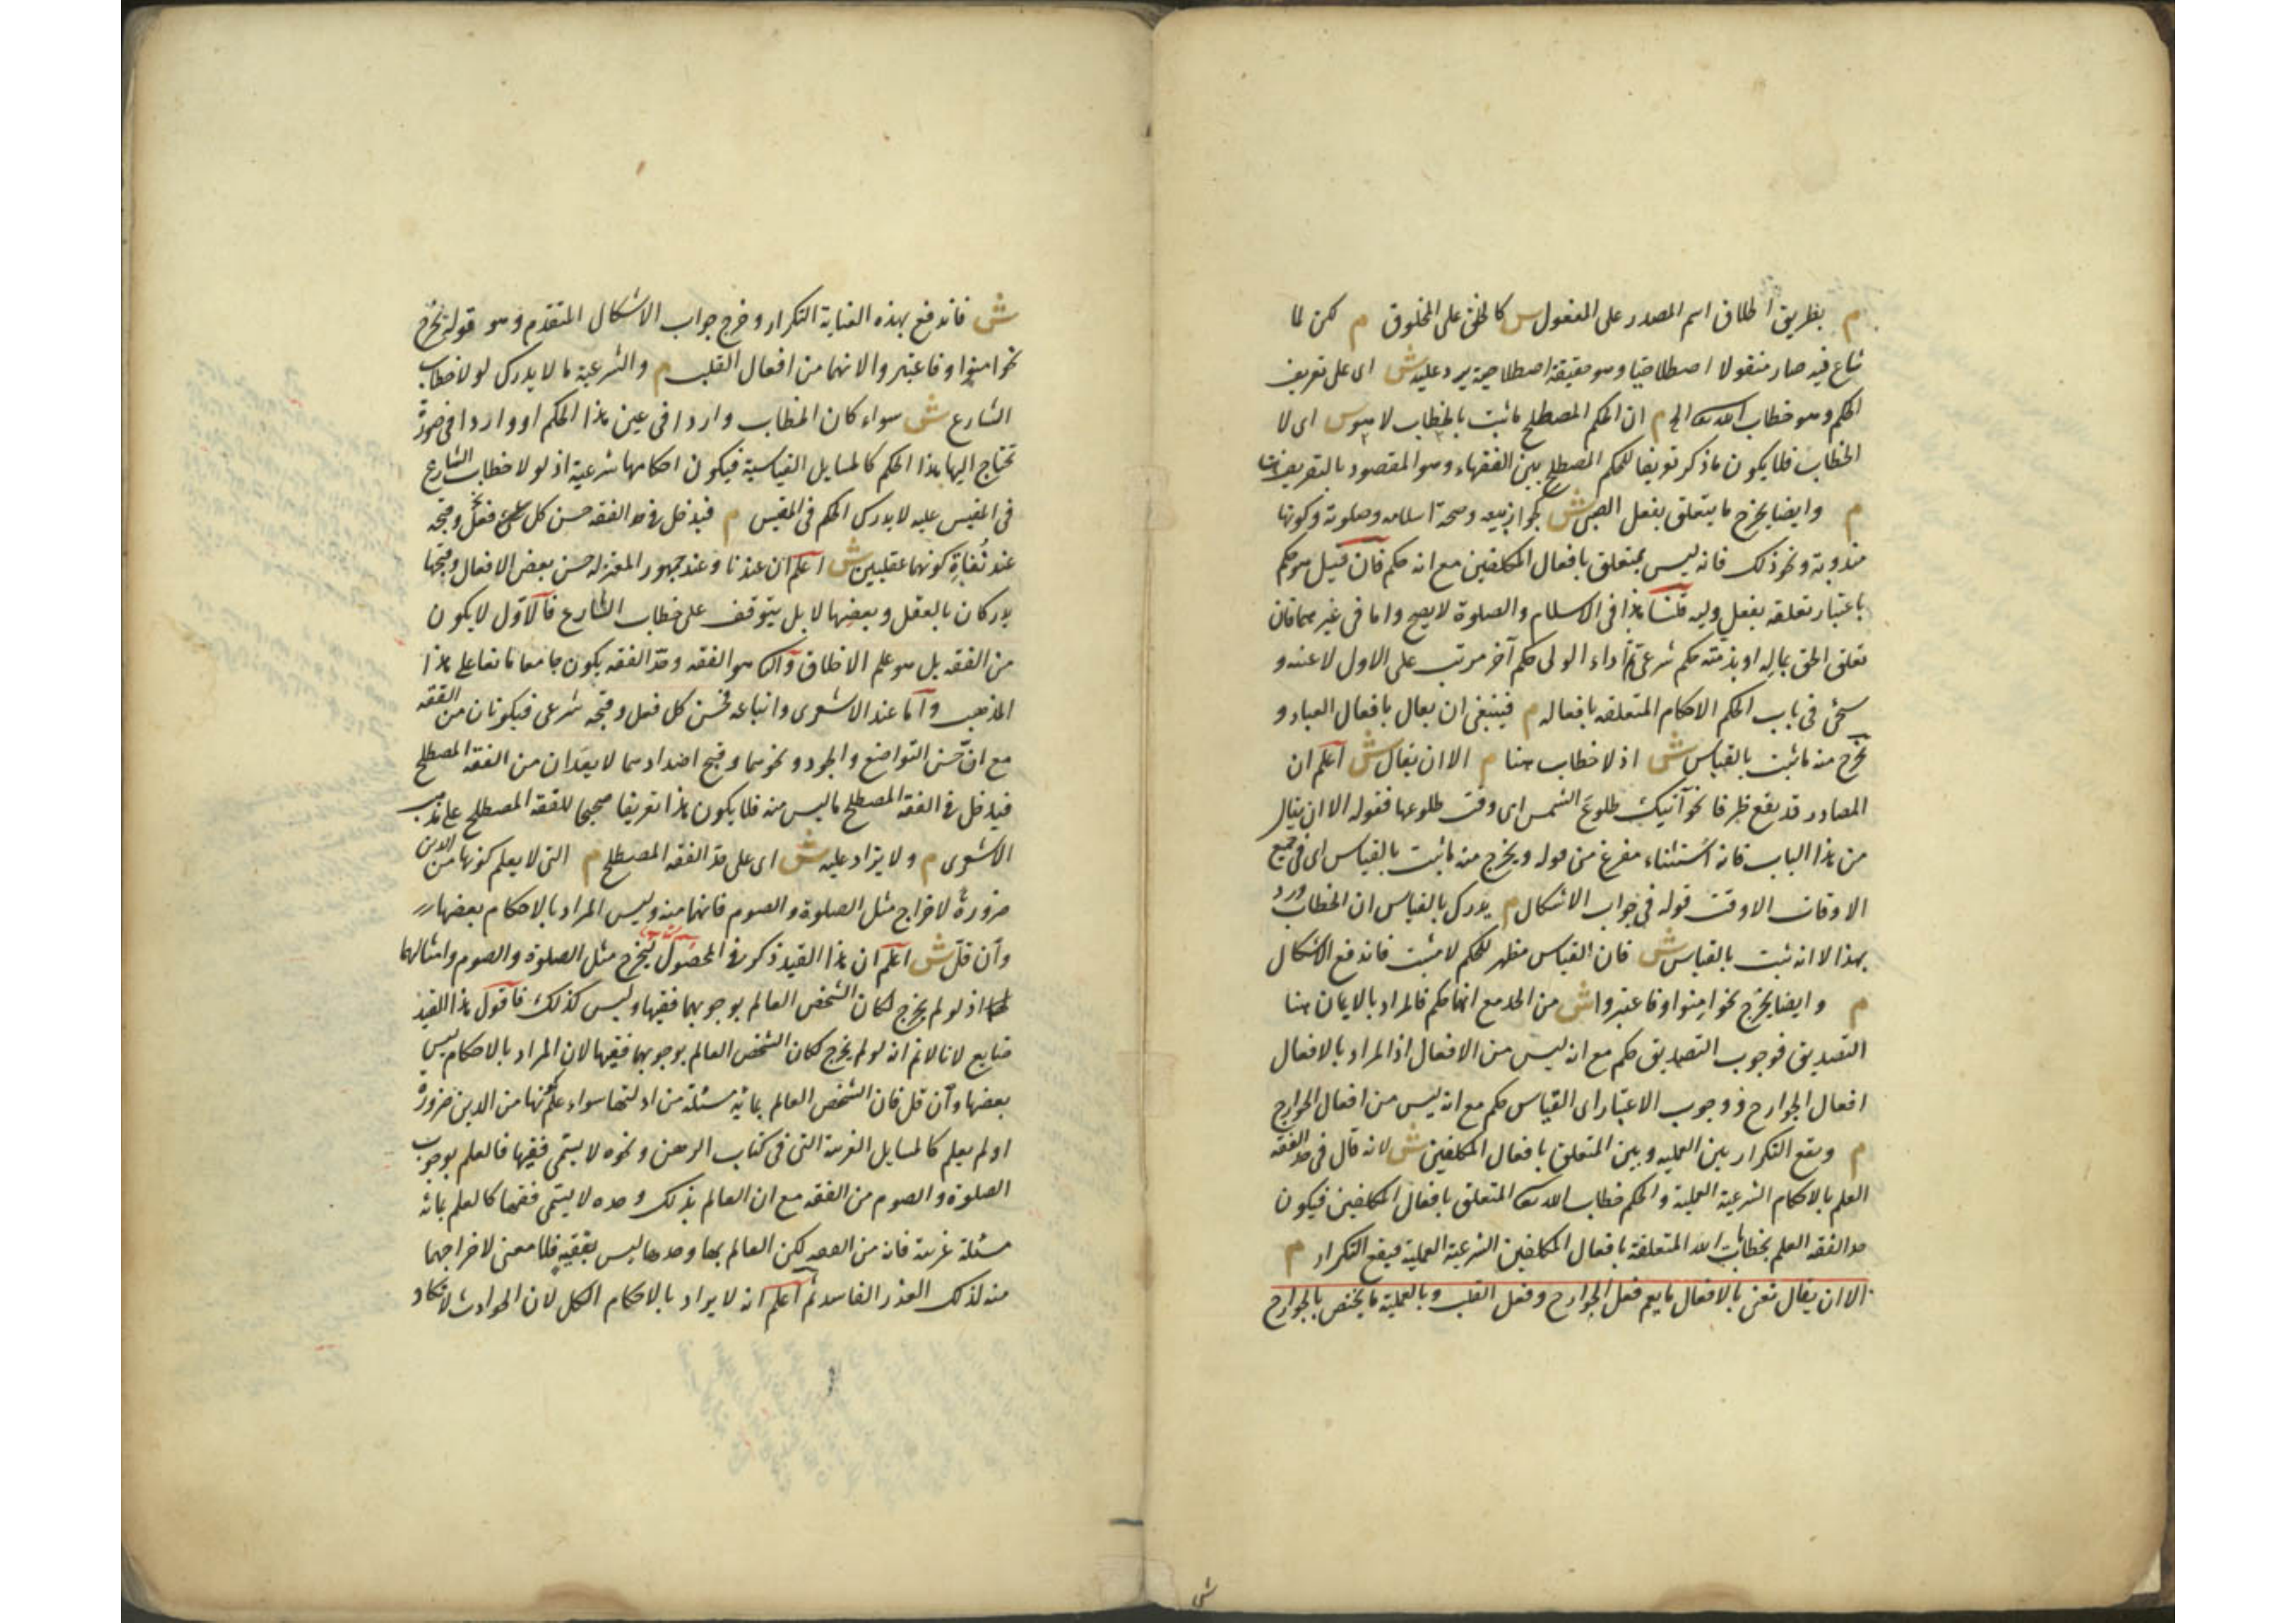 م بطريق اطلاق اسم المصدر على المفعول ش كالخلق على المخلوق م لكن لما
شاع فيه صار منقولا اصطلاحيا وهو حقيقة اصطلاحية يرد عليه ش اى على تعريف
الحكم وهو خطاب الله تعه الخ م ان الحكم المصطلح ما ثبت بالخطاب لا هو ش اى لا
الخطاب فلا يكون ما ذكر تعريفا للحكم المصطلح بين الفقهاء وهو المقصود بالتعريف
م وايضا يخرج ما يتعلق بفعل الصبى ش كجواز بيعه وصحة اسلامه وصلوته وكونها
مندوبة ونحو ذلك فانه ليس بمتعلق بافعال المكلفين مع انه حكم فان قيل هو حكم
باعتبار تعلقه بفعل وليه قلنا هذا فى الاسلام والصلوة لا يصح واما فى غيرهما فان
تعلق الحق بماله او بذمته حكم شرعى ثم اداء الولى حكم آخر مرتب على الاول لا عينه و
سيجئ فى باب الحكم الاحكام المتعلقة بافعاله م فينبغى ان يقال بافعال العباد و
يخرج منه ما ثبت بالقياس ش اذ لا خطاب هنا م الا ان يقال ش اعلم ان
المصادر قد يقع ظرفا نحو آتيك طلوع الشمس اى وقت طلوعها فقوله الا ان يقال
من هذا الباب فانه استثناء مفرغ من قوله ويخرج منه ما ثبت بالقياس اى فى جميع
الاوقات الا وقت قوله فى جواب الاشكال م يدرك بالقياس ان الخطاب ورد
بهذا لا انه ثبت بالقياس ش فان القياس مظهر للحكم لا مثبت فاندفع الاشكال
م وايضا يخرج نحو امنوا وفاعتبروا ش من الحد مع انهما حكم فالمراد بالايمان هنا
التصديق فوجوب التصديق حكم مع انه ليس من الافعال اذ المراد بالافعال
افعال الجوارح ووجوب الاعتبار اى القياس حكم مع انه ليس من افعال الجوارح
م ويقع التكرار بين العملية وبين المتعلق بافعال المكلفين ش لانه قال فى حد الفقه
العلم بالاحكام الشرعية العملية والحكم خطاب الله تعه المتعلق بافعال المكلفين فيكون
حد الفقه العلم بخطابات الله المتعلقة بافعال المكلفين الشرعية العملية فيقع التكرار م
الا ان يقال نعنى بالافعال ما يعم فعل الجوارح وفعل القلب وبالعملية ما يختص بالجوارح
ش فاندفع بهذه العناية التكرار وخرج جواب الاشكال المتقدم وهو قوله يخرج
نحو امنوا وفاعتبروا لانهما من افعال القلب م والشرعية ما لا يدرك لولا خطاب
الشارع ش سواء كان الخطاب واردا فى عين هذا الحكم او واردا فى صورة
تحتاج اليها هذا الحكم كالمسايل القياسية فيكون احكامها شرعية اذ لولا خطاب الشارع
فى المقيس عليه لا يدرك الحكم فى المقيس م فيدخل فى حد الفقه حسن كل فعل وقبحه
عند نفاة كونهما عقليين ش اعلم ان عندنا وعند جمهور المعتزلة حسن بعض الافعال وقبحها
يدركان بالعقل وبعضها لا بل يتوقف على خطاب الشارع فالاول لا يكون
من الفقه بل هو علم الاخلاق والثانى هو الفقه وحد الفقه يكون جامعا مانعا على هذا
المذهب واما عند الاشعرى واتباعه فحسن كل فعل وقبحه شرعى فيكونان من الفقه
مع ان حسن التواضع والجود ونحوهما وقبح اضدادهما لا يعدان من الفقه المصطلح
فيدخل فى الفقه المصطلح ما ليس منه فلا يكون هذا تعريفا صحيحا للفقه المصطلح على مذهب
الاشعرى م ولا يزاد عليه ش اى على حد الفقه المصطلح م التى لا يعلم كونها من الدين
ضرورة لاخراج مثل الصلوة والصوم فانهما منه وليس المراد بالاحكام بعضها
وان قل ش اعلم ان هذا القيد ذكر فى المحصول ليخرج مثل الصلوة والصوم وامثالهما
اذ لو لم يخرج لكان الشخص العالم بوجوبهما فقيها وليس كذلك فاقول هذا القيد
ضايع لانا لا نم انه لو لم يخرج لكان الشخص العالم بوجوبهما فقيها لان المراد بالاحكام ليس
بعضها وان قل فان الشخص العالم بماية مسئلة من ادلتها سواء علم كونها من الدين ضرورة
او لم يعلم كالمسايل الغريبة التى فى كتاب الرهن ونحوه لا يسمى فقيها فالعلم بوجوب
الصلوة والصوم من الفقه مع ان العالم بذلك وحده لا يسمى فقيها كالعلم بماية
مسئلة غريبة فانه من الفقه لكن العالم بها وحدها ليس بفقيه فلا معنى لاخراجهما
منه لذلك العذر الفاسد ثم اعلم انه لا يراد بالاحكام الكل لان الحوادث لا تكاد